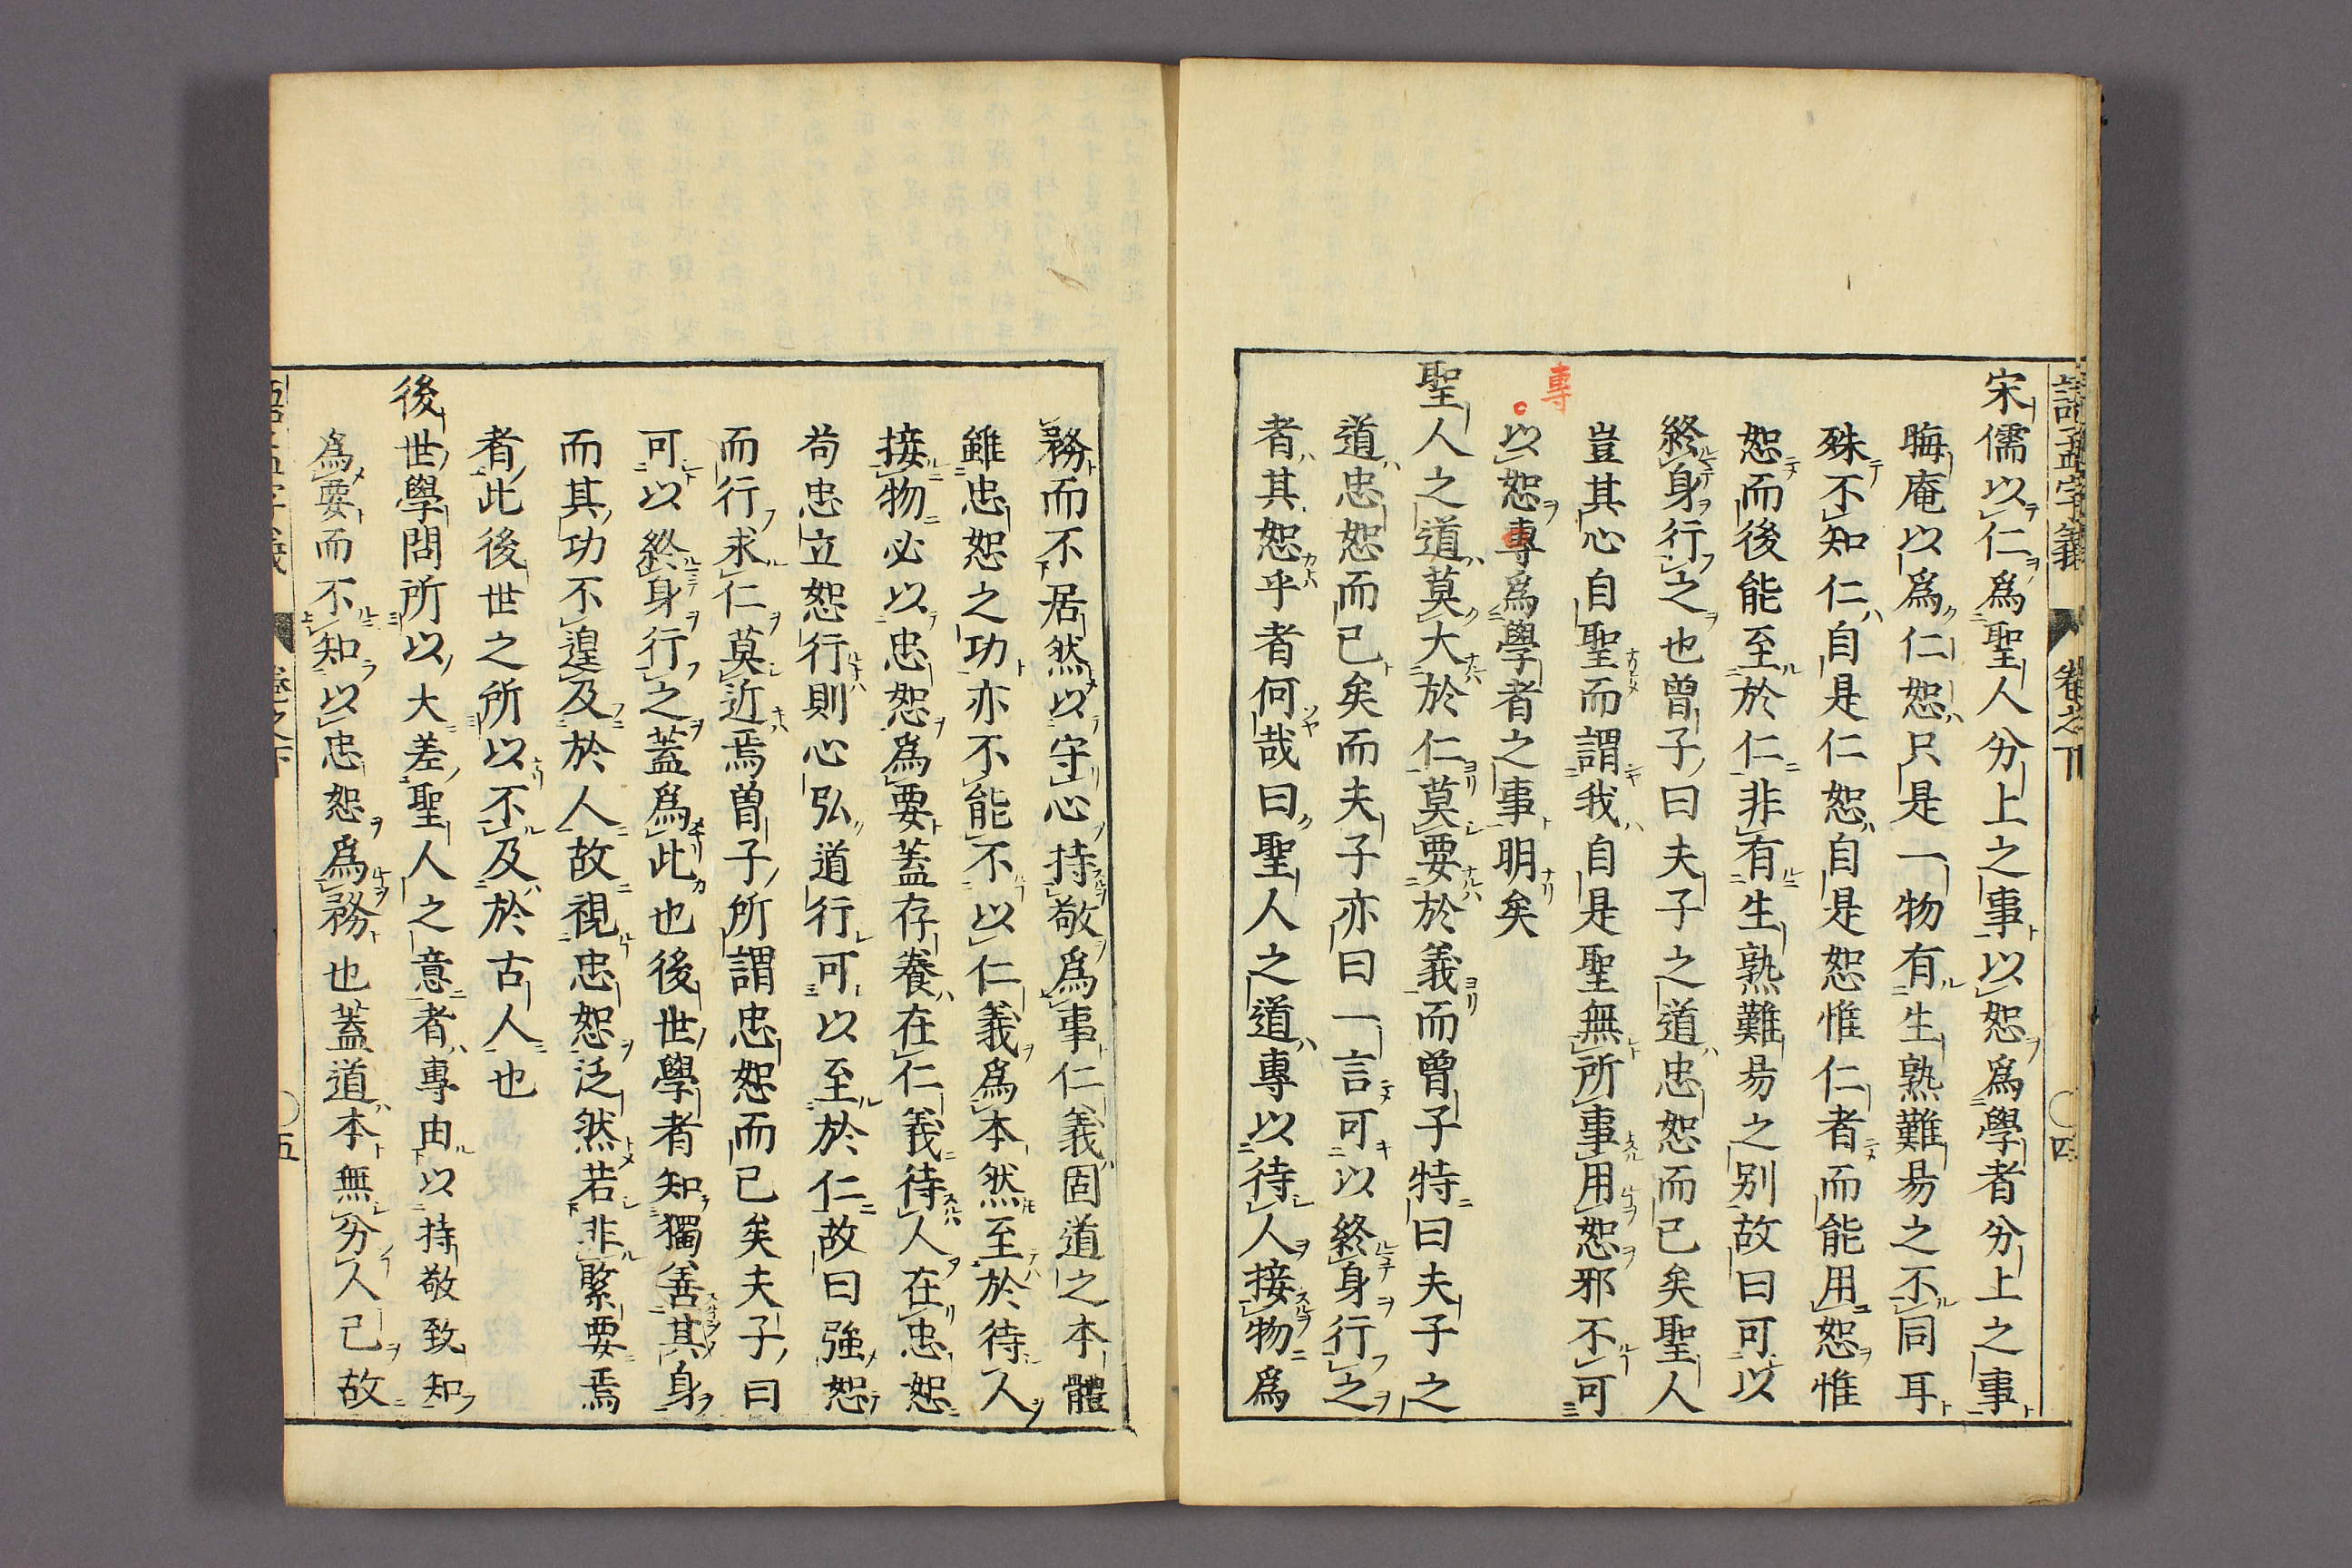 語孟字義 卷之下 〇四
宋儒以仁爲聖人分上之事以恕爲學者分上之事
晦庵以爲仁恕只是一物有生熟難易之不同耳
殊不知仁自是仁恕自是恕惟仁者而能用恕惟
恕而後能至於仁非有生熟難易之別故曰可以
終身行之也曾子曰夫子之道忠恕而已矣聖人
豈其心自聖而謂我自是聖無所事用恕邪不可
專
以恕專爲學者之事明矣
聖人之道莫大於仁莫要於義而曾子特曰夫子之
道忠恕而已矣而夫子亦曰一言可以終身行之
者其恕乎者何哉曰聖人之道專以待人接物爲
務而不居然以守心持敬爲事仁義固道之本體
雖忠恕之功亦不能不以仁義爲本然至於待人
接物必以忠恕爲要蓋存養在仁義待人在忠恕
苟忠立恕行則心弘道行可以至於仁故曰強恕
而行求仁莫近焉曾子所謂忠恕而已矣夫子曰
可以終身行之蓋爲此也後世學者知獨善其身
而其功不遑及於人故視忠恕泛然若非緊要焉
者此後世之所以不及於古人也
後世學問所以大差聖人之意者專由以持敬致知
爲要而不知以忠恕爲務也蓋道本無分人己故
語孟字義 卷之下 〇五